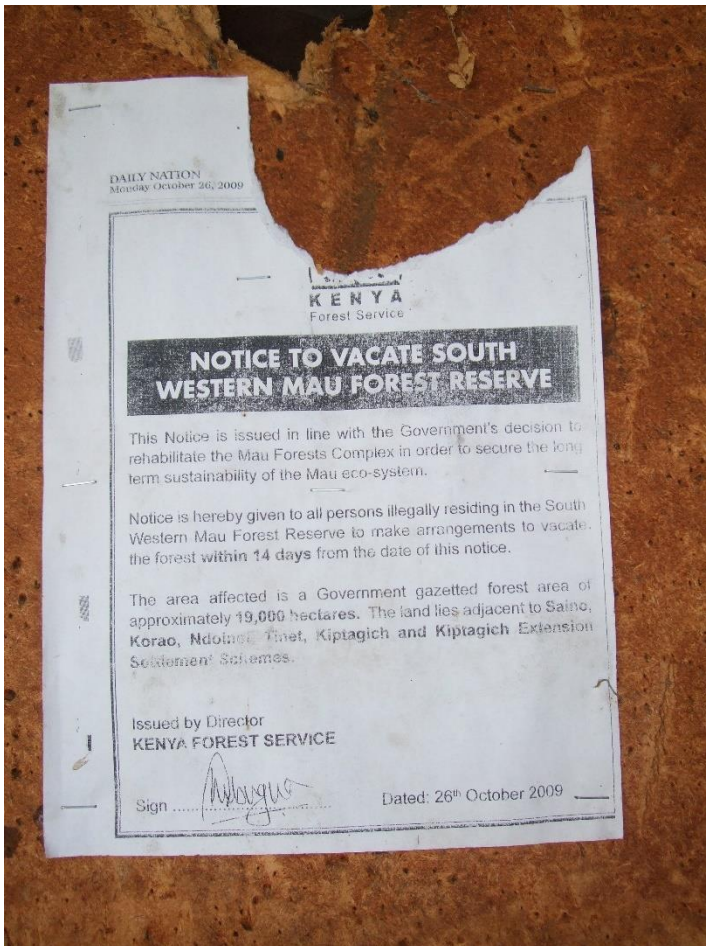 DAILY NATION
Monday October 26, 2009
KENYA
Forest Service
NOTICE TO VACATE SOUTH
WESTERN MAU FOREST RESERVE
This Notice is issued in line with the Government's decision to
rehabilitate the Mau Forests Complex in order to secure the long
term sustainability of the Mau eco-system.
Notice is hereby given to all persons illegally residing in the South
Western Mau Forest Reserve to make arrangements to vacate
the forest within 14 days from the date of this notice.
The area affected is a Government gazetted forest area of
approximately 19,000 hectares. The land lies adjacent to Saino,
Korao, Tinet, Kiptagich and Kiptagich Extension
Settlement Schemes.
Issued by Director
KENYA FOREST SERVICE
Sign ..............................
Dated: 26th October 2009